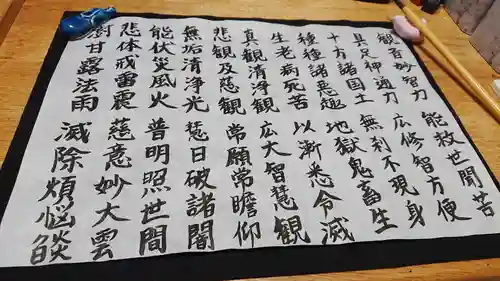 観音妙智力 能救世間苦
具足神通力 広修智方便
十方諸国土 無刹不現身
種種諸悪趣 地獄鬼畜生
生老病死苦 以漸悉令滅
真観清浄観 広大智慧観
悲観及慈観 常願常瞻仰
無垢清浄光 慧日破諸闇
能伏災風火 普明照世間
悲体戒雷震 慈意妙大雲
澍甘露法雨 滅除煩悩燄